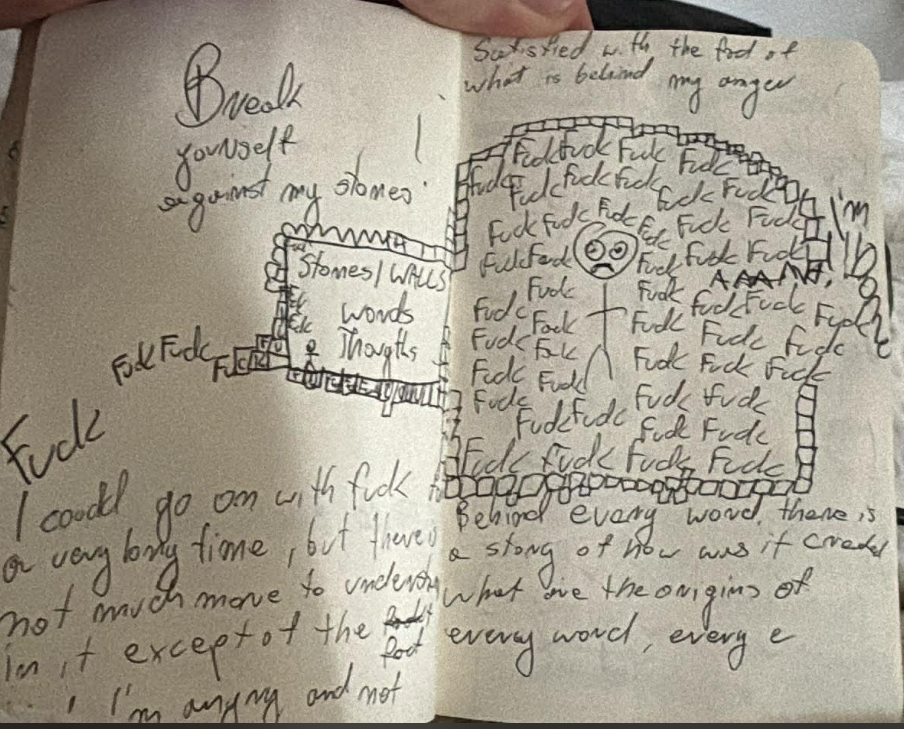 Break
yourself
against my stones!
Stones/WALLS
words
Thougths
Fuck Fuck
Fuck
I could go on with fuck for
a very long time, but there's
not much more to
in it except of the
fact
I'm angry and not
Satisfied with the fact of
what is behind my anger
Fuck Fuck Fuck Fuck
Fuck Fuck Fuck Fuck Fuck Fuck
Fuck Fuck Fuck Fuck Fuck Fuck
Fuck Fuck Fuck Fuck Fuck
AAAAA!
I'm
Fuck Fuck Fuck Fuck
Fuck Fuck Fuck Fuck Fuck
Fuck Fuck Fuck Fuck Fuck
Fuck Fuck Fuck Fuck
Fuck Fuck Fuck
Fuck Fuck Fuck Fuck
Fuck Fuck Fuck Fuck
Behind every word, there is
a story of how was it created
what are the origins of
every word, every e